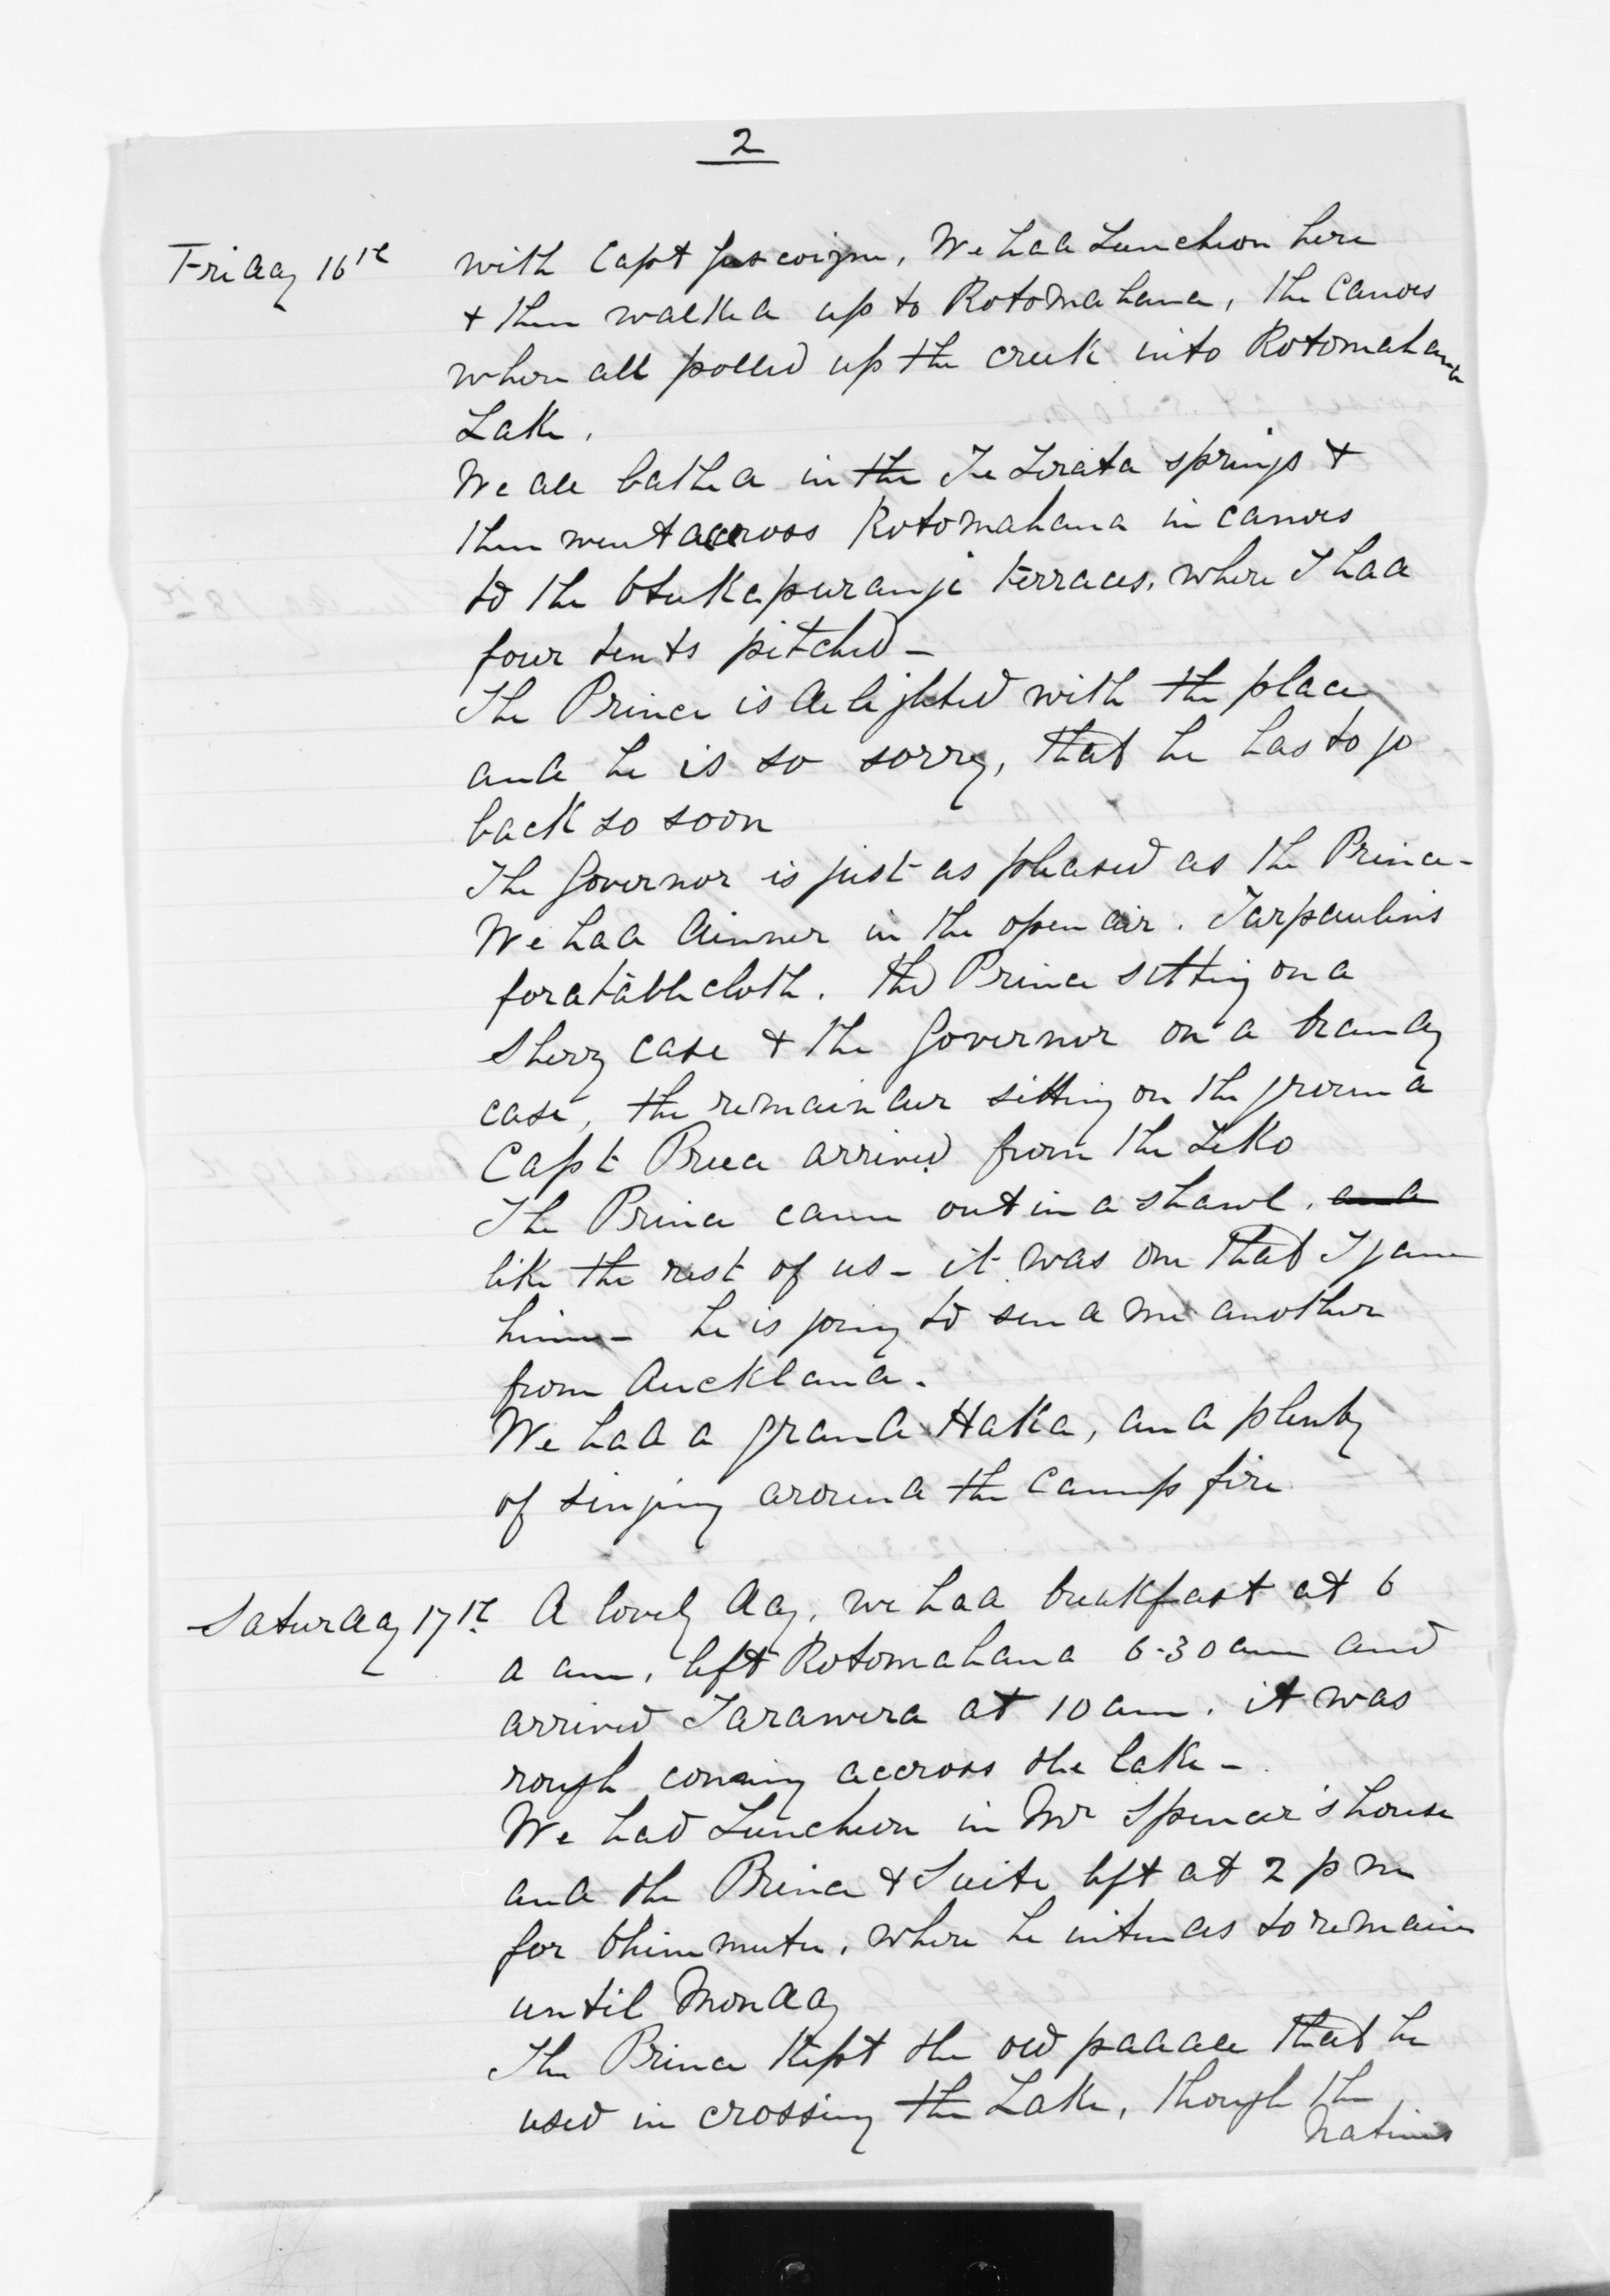 2
Friday 16th with Capt Gascoigne, We had Luncheon here
& then walked up to Rotomahana, the Canoes
when all polled up the creek into Rotomahana
Lake.
We all bathed in the Te Terata springs &
then went accross Rotomahana in canoes
to the Otukapurangi terraces, where I had
four tents pitched -
The Prince is delighted with the place
and he is so sorry, that he has to go
back so soon
The Governor is just as pleased as the Prince -
We had dinner in the open air. Tarpaulins
for a table cloth. The Prince sitting on a
Sherry case & the Governor on a brandy
case, the remainder sitting on the ground
Capt Preece arrived from the Teko
The Prince came out in a shawl, and
like the rest of us - it was one that I gave
him - he is going to send me another
from Auckland.
We had a grand Haka, and plenty
of singing around the camp fire
Saturday 17th A lovely day, we had breakfast at 6
a am, left Rotomahana 6-30 am and
arrived Tarawera at 10 am. it was
rough coming accross the lake -
We had Luncheon in Mr Spencer's house
and the Prince & Suite left at 2 pm
for Ohinemutu, where he intends to remain
until Monday
The Prince kept the old paddle that he
used in crossing the Lake, though the
Natives